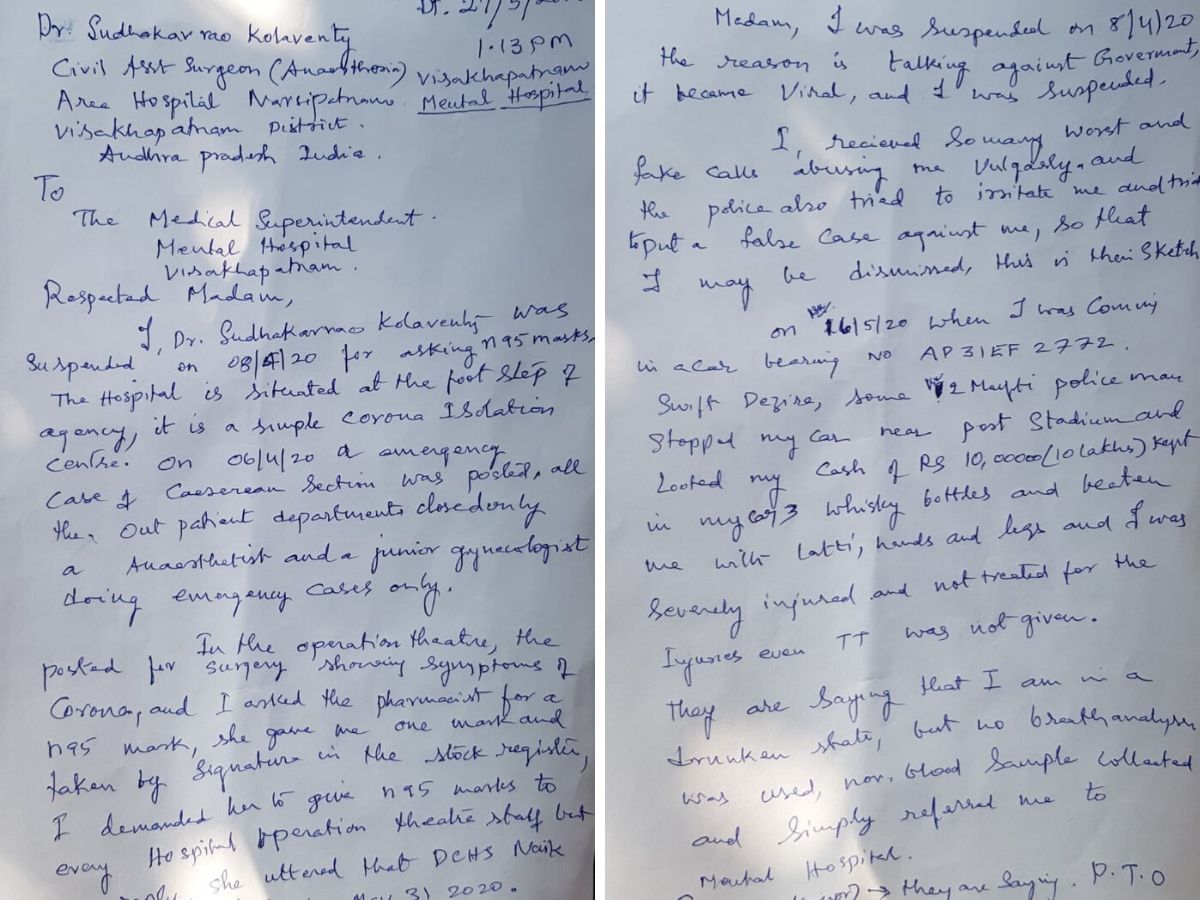 Dr. Sudhakar rao Kolaventy
Civil Asst Surgeon (Anaesthesia)
Area Hospital Narsipatnam.
Visakhapatnam District.
Andhra pradesh India.
Dt. 27/5/
1.13 PM
Visakhapatnam
Mental Hospital
To
The Medical Superintendent.
Mental Hospital
Visakhapatnam.
Respected Madam,
I, Dr. Sudhakarrao Kolaventy was
Suspended on 08/4/20 for asking n95 masks.
The Hospital is situated at the foot step of
agency, it is a simple corona Isolation
centre. On 06/4/20 a emergency
case of Caeserean Section was posted, all
the out patient departments closed only
a Anaesthetist and a junior gynecologist
doing emergency cases only.
In the operation theatre, the
posted for surgery showing symptoms of
Corona, and I asked the pharmacist for a
n95 mask, she gave me one mask and
taken by signature in the stock register,
I demanded her to give n95 masks to
every Hospital operation theatre staff but
she uttered that DCHS Naik
May 31 2020.
Madam, I was suspended on 8/4/20
the reason is talking against Goverment,
it became Viral, and I was suspended.
I, recieved so many worst and
fake calls abusing me Vulgarly. and
the police also tried to irritate me and tried
to put a false case against me, so that
I may be dismissed, this is their Sketch
on 16/5/20 when I was coming
in a car bearing No AP 31EF 2772.
Swift Dezire, some 2 Mayfti police man
Stopped my car near port Stadium and
Looted my cash of RS 10,00000 (10 lakhs) kept
in my car, 3 whisky bottles and beaten
me with Latti, hands and legs and I was
severely injured and not treated for the
Injuries even TT was not given.
They are saying that I am in a
drunken state, but no breath analyser
was used, nor. blood sample collected
and simply referred me to
Mental Hospital.
→ they are saying. P.T.O